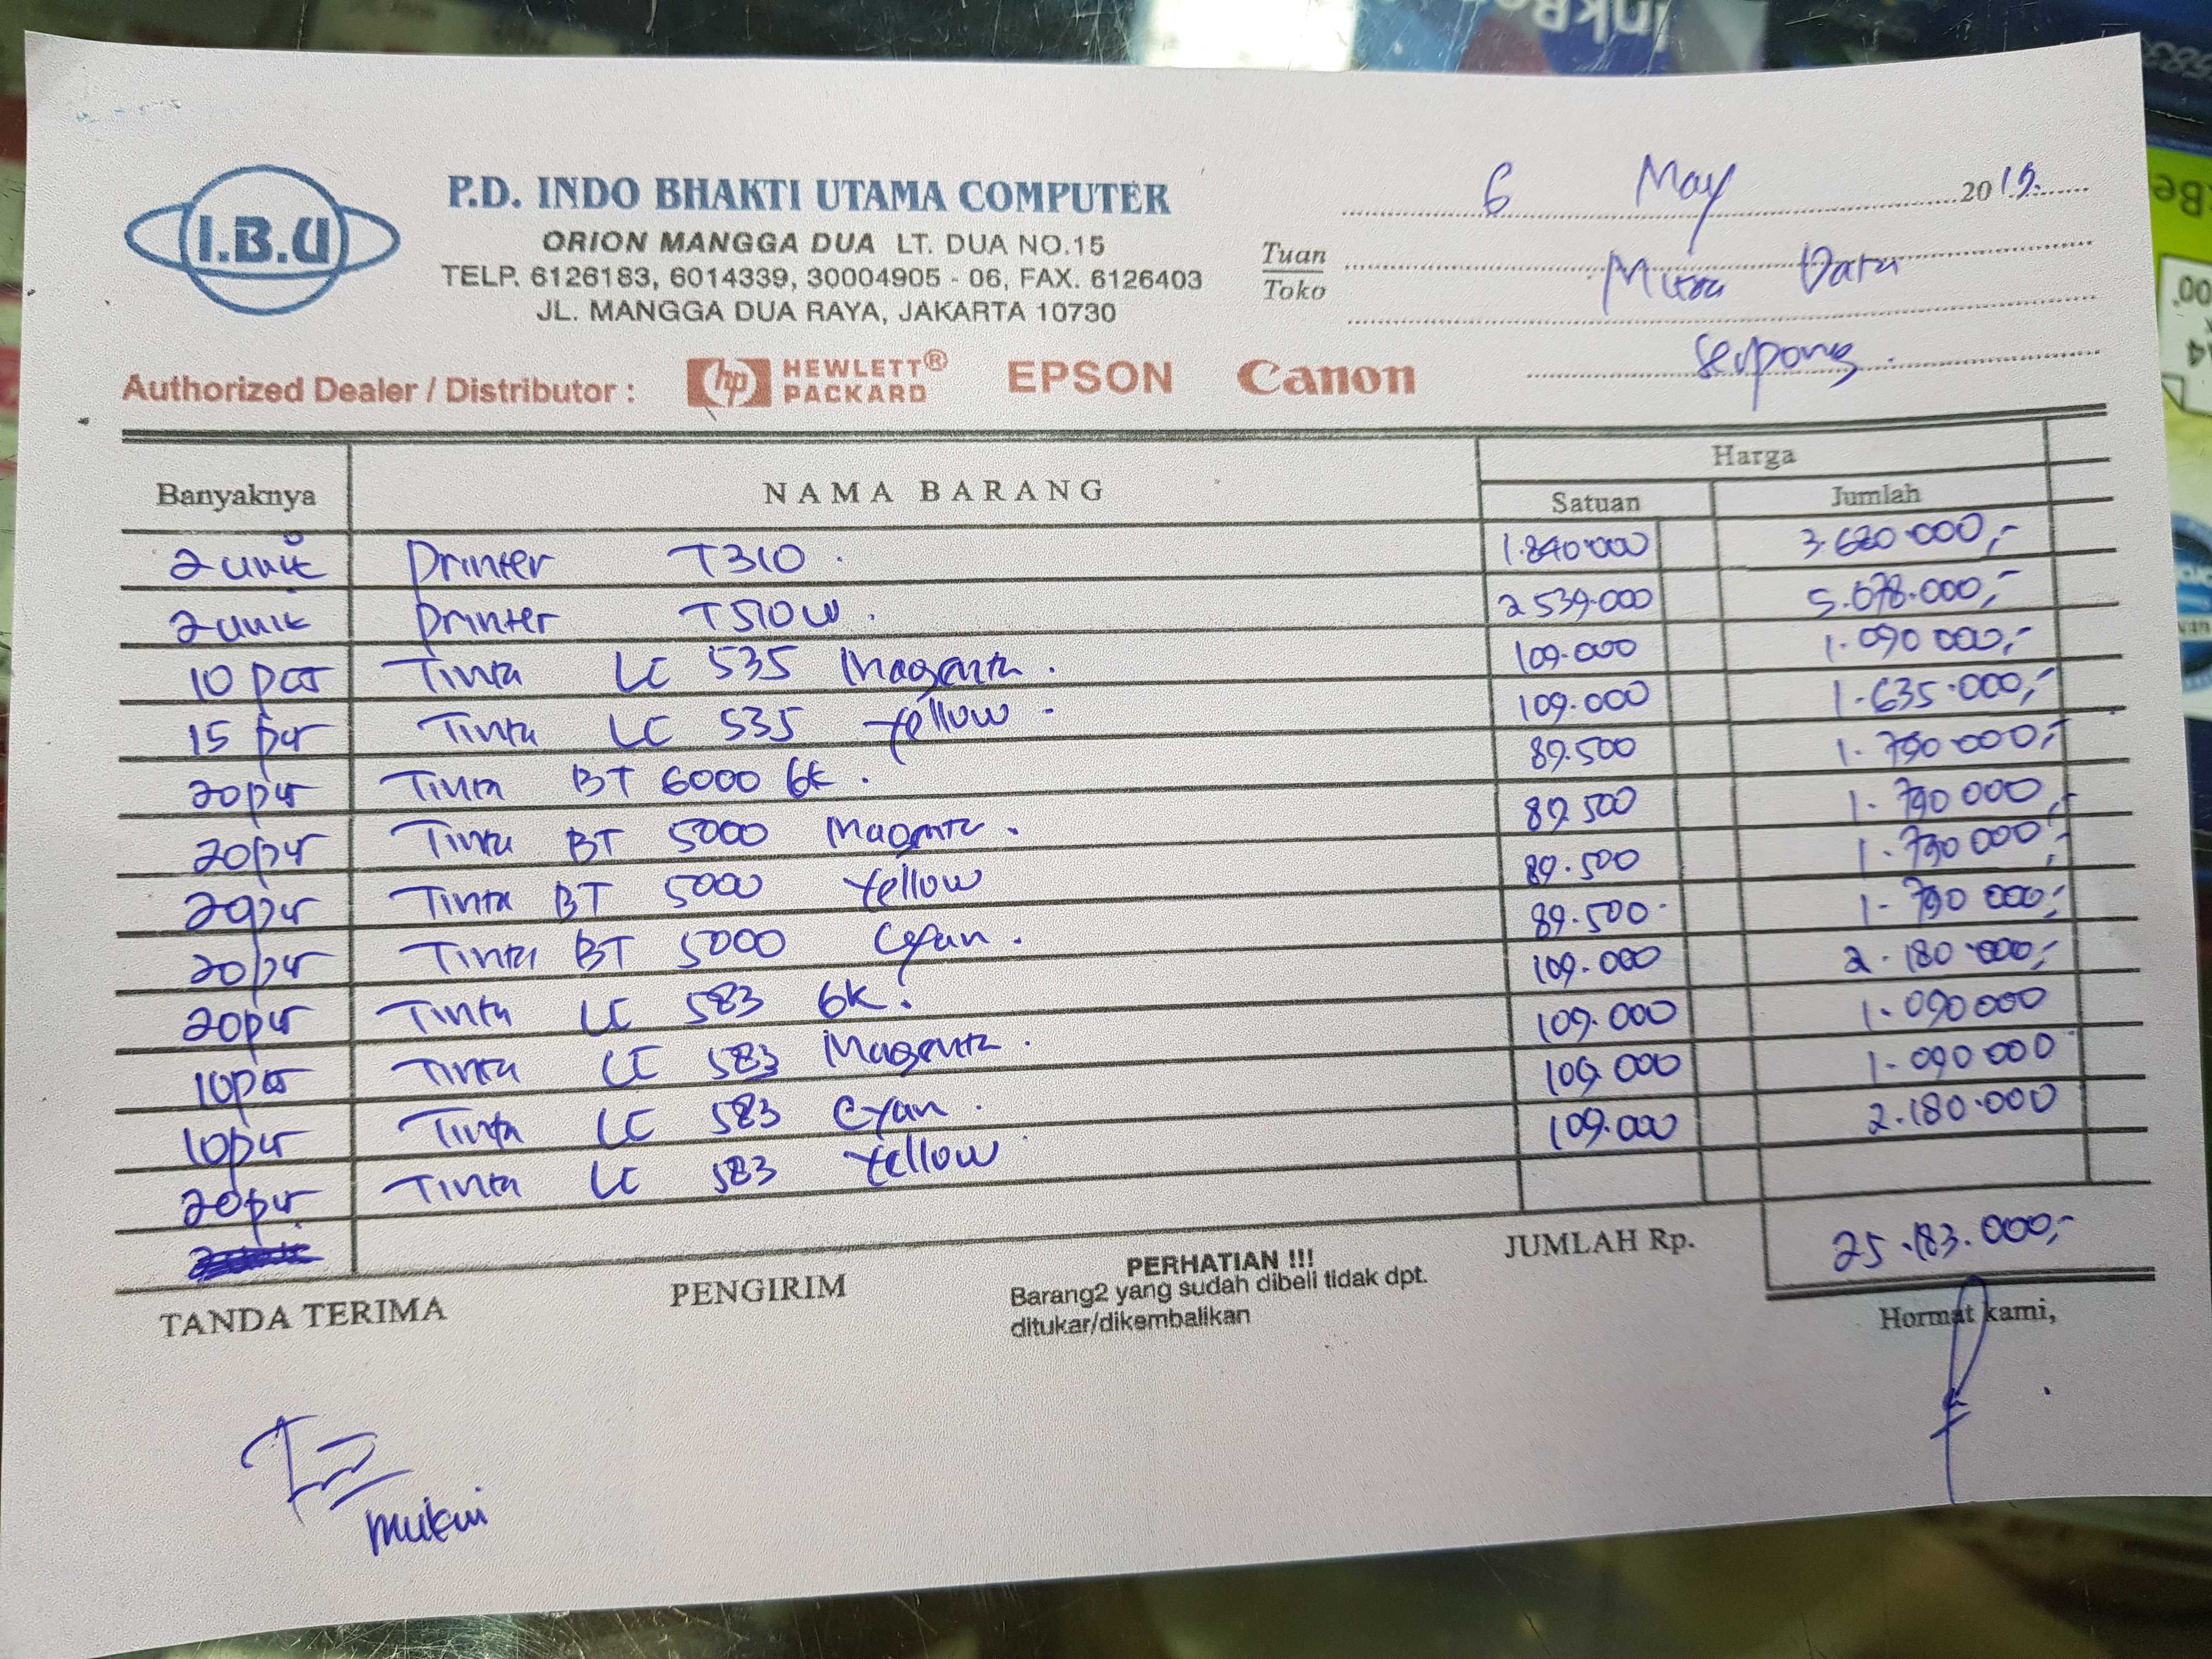 I.B.U
P.D. INDO BHAKTI UTAMA COMPUTER
ORION MANGGA DUA LT. DUA NO.15
TELP. 6126183, 6014339, 30004905 - 06, FAX. 6126403
JL. MANGGA DUA RAYA, JAKARTA 10730
Authorized Dealer / Distributor : hp HEWLETT® PACKARD EPSON Canon
6 May 2019.
Tuan
Toko
Data
Serpong.
Banyaknya NAMA BARANG Harga
Satuan Jumlah
2 unit Printer T310. 1.840.000 3.680.000,-
2 unit Printer T510W. 2 539.000 5.078.000,-
10 pcs Tinta LC 535 Magenta. 109.000 1.090 000,-
15 pcs Tinta LC 535 Yellow. 109.000 1.635.000,-
20 pcs Tinta BT 6000 BK. 89.500 1.790 000,-
20 pcs Tinta BT 5000 Magenta. 89.500 1.790 000,-
20 pcs Tinta BT 5000 Yellow 89.500 1.790 000,-
20 pcs Tinta BT 5000 Cyan. 89.500 1.790 000,-
20 pcs Tinta LC 583 BK. 109.000 2.180.000,-
10 pcs Tinta LC 583 Magenta. 109.000 1.090 000
10 pcs Tinta LC 583 Cyan. 109.000 1.090 000
20 pcs Tinta LC 583 Yellow 109.000 2.180.000
JUMLAH Rp. 25.183.000,-
TANDA TERIMA PENGIRIM
PERHATIAN !!!
Barang2 yang sudah dibeli tidak dpt.
ditukar/dikembalikan
Hormat kami,